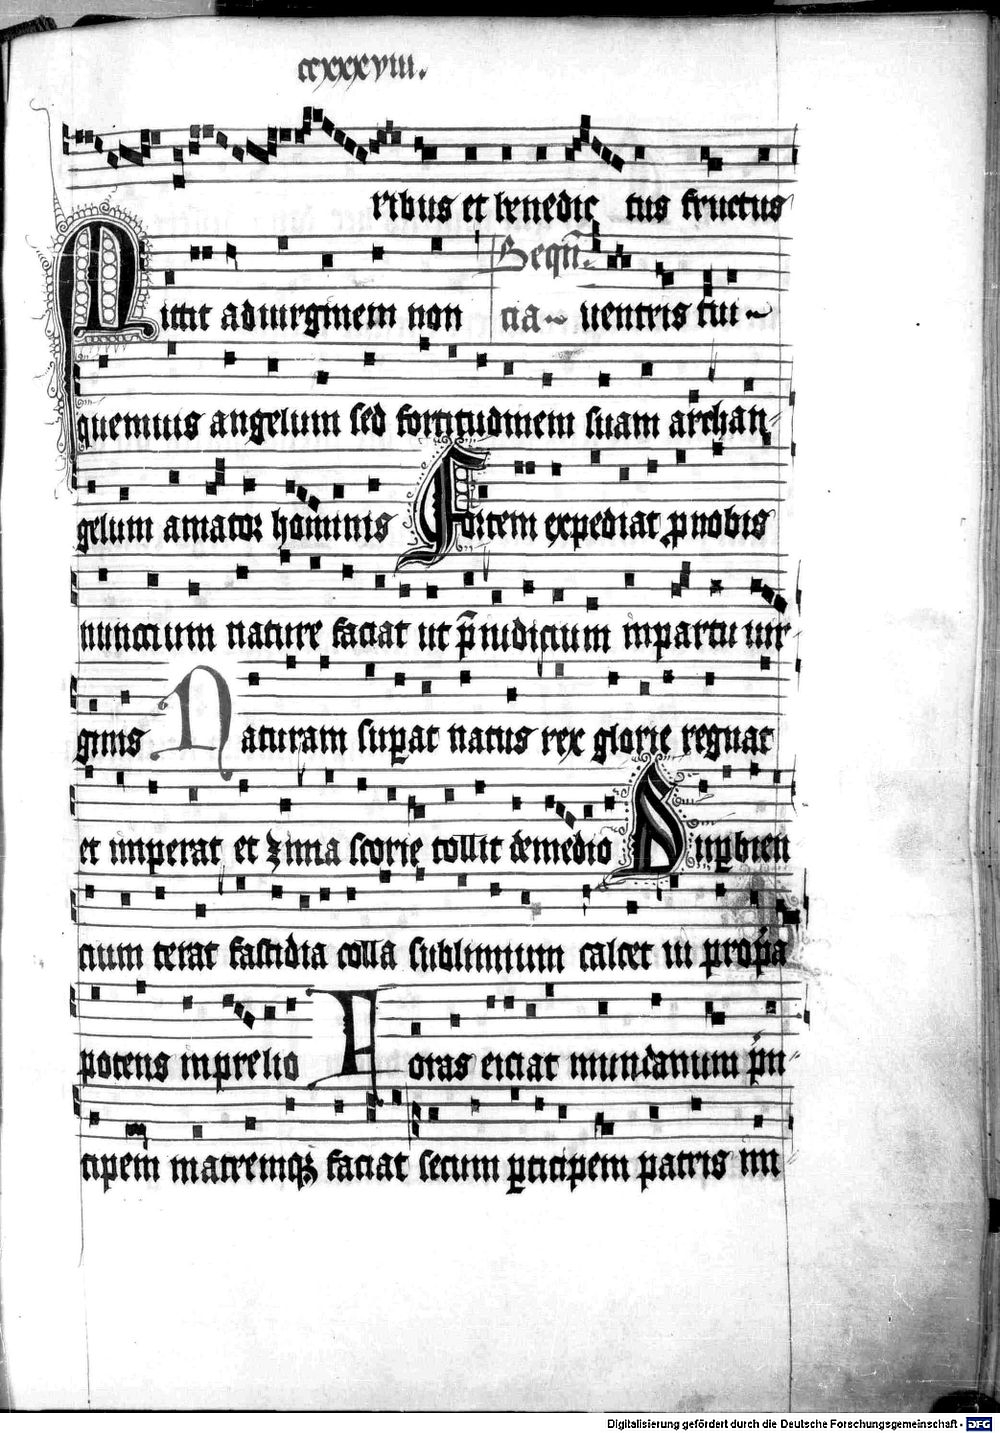 ccxxxviii.
ribus et benedic tus fructus
Sequn̄.
Mittit ad uirginem non cia uentris tui
quemuis angelum sed fortitudinem suam archan
gelum amator hominis Fortem expediat ꝓ nobis
nunccium nature faciat ut p̄iudicium in partu uir
ginis Naturam suꝑat natus rex glorie regnat
et imperat et zima scorie tollit de medio Suꝑbien
cium terat fastidia colla sublimium calcet ui propͥa
potens in prelio Foras eiciat mundanum pͥn
cipem matremqꝫ faciat secum ꝑticipem patris im
Digitalisierung gefördert durch die Deutsche Forschungsgemeinschaft - DFG